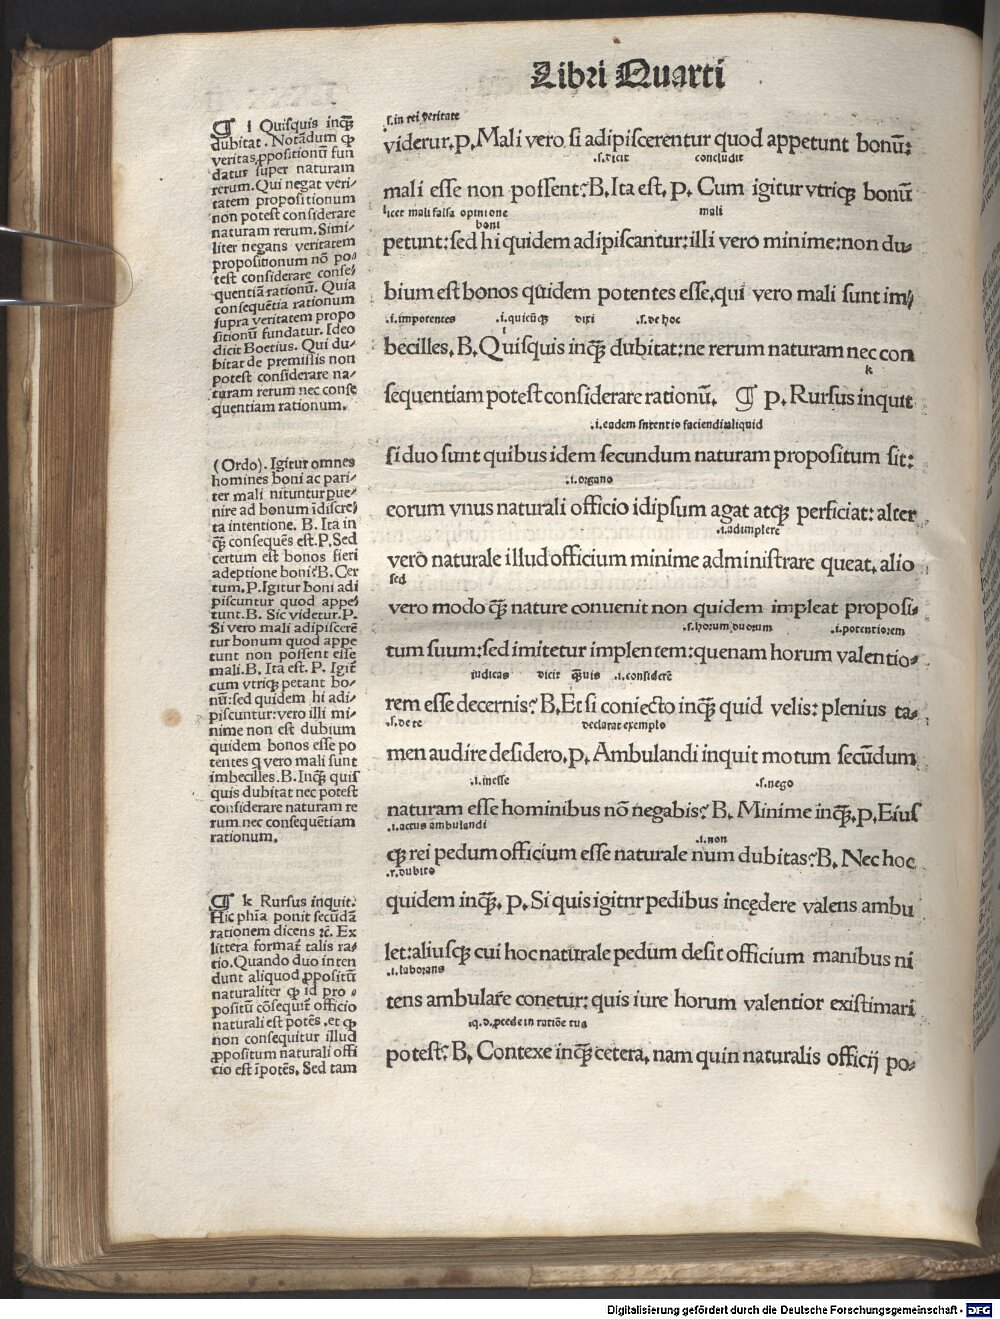 Libri Quarti
¶ i Quiſquis inq̄ꝫ
dubitat. Notādum ꝙ
veritas ꝓpoſitionū fun
datur ſuper naturam
rerum. Qui negat veri⸗
tatem propoſitionum
non poteſt conſiderare
naturam rerum. Simi⸗
liter negans veritatem
propoſitionum nō po⸗
teſt conſiderare conſe⸗
quentiā rationū. Quia
conſequētia rationum
ſupra veritatem propo
ſitionū fundatur. Ideo
dicit Boetius. Qui du⸗
bitat de premiſſis non
poteſt conſiderare na⸗
turam rerum nec conſe
quentiam rationum.
(Ordo). Igitur omnes
homines boni ac pari⸗
ter mali nituntur ꝑue⸗
nire ad bonum idiſcre⸗
ta intentione. B. Ita in
q̄ꝫ conſequēs eſt. P. Sed
certum eſt bonos fieri
adeptione boni? B. Cer
tum. P. Igitur boni adi
piſcuntur quod appe⸗
tunt. B. Sic videtur. P.
Si vero mali adipiſcerē
tur bonum quod appe
tunt non poſſent eſſe
mali. B. Ita eſt. P. Igit᷑
cum vtriqꝫ petant bo⸗
nū: ſed quidem hi adi⸗
piſcuntur: vero illi mi⸗
nime non eſt dubium
quidem bonos eſſe po
tentes q vero mali ſunt
imbecilles. B. Inq̄ꝫ quiſ
quis dubitat nec poteſt
conſiderare naturam re
rum nec conſequētiam
rationum.
¶ k Rurſus inquit.
Hic phia ponit ſecūdā
rationem dicens ⁊c̄. Ex
littera format᷑ talis ra⸗
tio. Quando duo inten
dunt aliquod ꝓpoſitū
naturaliter ꝙ id pro⸗
poſitū cōſequit᷑ officio
naturali eſt potēs. et ꝙ
non conſequitur illud
ꝓpoſitum naturali offi
cio eſt ipotēs. Sed tam
.ſ. in rei veritate
viderur. p. Mali vero ſi adipiſcerentur quod appetunt bonū:
.ſ. dicit concludit
mali eſſe non poſſent? B. Ita eſt. p. Cum igitur vtriqꝫ bonū
licet mali falſa opinione boni mali
petunt: ſed hi quidem adipiſcantur: illi vero minime: non du⸗
bium eſt bonos quidem potentes eſſe. qui vero mali ſunt im⸗
.i. impotentes .i. quicūqꝫ dixi .ſ. de hoc
i
becilles. B. Quiſquis inq̄ꝫ dubitat: ne rerum naturam nec con
k
ſequentiam poteſt conſiderare rationū. ¶ p. Rurſus inquit
.i. eadem intentio faciendi aliquid
ſi duo ſunt quibus idem ſecundum naturam propoſitum ſit:
.i. organo
eorum vnus naturali officio idipſum agat atqꝫ perficiat: alter
.i. adimplere
vero naturale illud officium minime adminiſtrare queat. alio
ſed
vero modo q̄ꝫ nature conuenit non quidem impleat propoſi⸗
.ſ. horum duorum .i. potentiorem
tum ſuum: ſed imitetur implentem: quenam horum valentio⸗
iudicas dicit q̄uis .i. conſiderē
rem eſſe decernis? B. Et ſi coniecto inq̄ꝫ quid velis: plenius ta⸗
.ſ. de re declarat exemplo
men audire deſidero. p. Ambulandi inquit motum ſecūdum
.i. ineſſe .ſ. nego
naturam eſſe hominibus nō negabis? B. Minime inq̄ꝫ. p. Eiuſ
.i. actus ambulandi .i. non
qꝫ rei pedum officium eſſe naturale num dubitas? B. Nec hoc
.ſ. dubito
quidem inq̄ꝫ. p. Si quis igitnr pedibus incedere valens ambu
let: aliuſqꝫ cui hoc naturale pedum deſit officium manibus ni
.i. laborans
tens ambulare conetur: quis iure horum valentior exiſtimari
.q. d. ꝓcede in ratiōe tua
poteſt? B. Contexe inq̄ꝫ cetera. nam quin naturalis officij po⸗
Digitalisierung gefördert durch die Deutsche Forschungsgemeinschaft - DFG